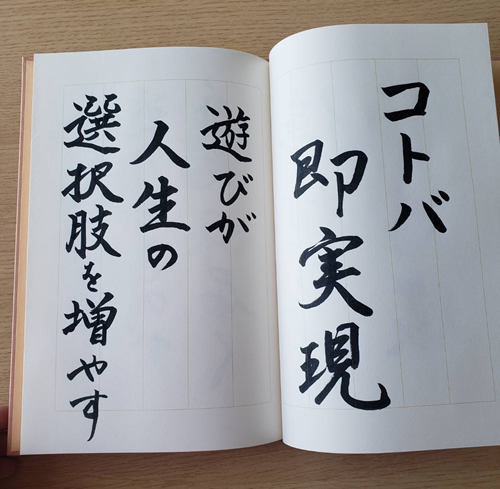 コトバ
即実現
遊びが
人生の
選択肢を増やす